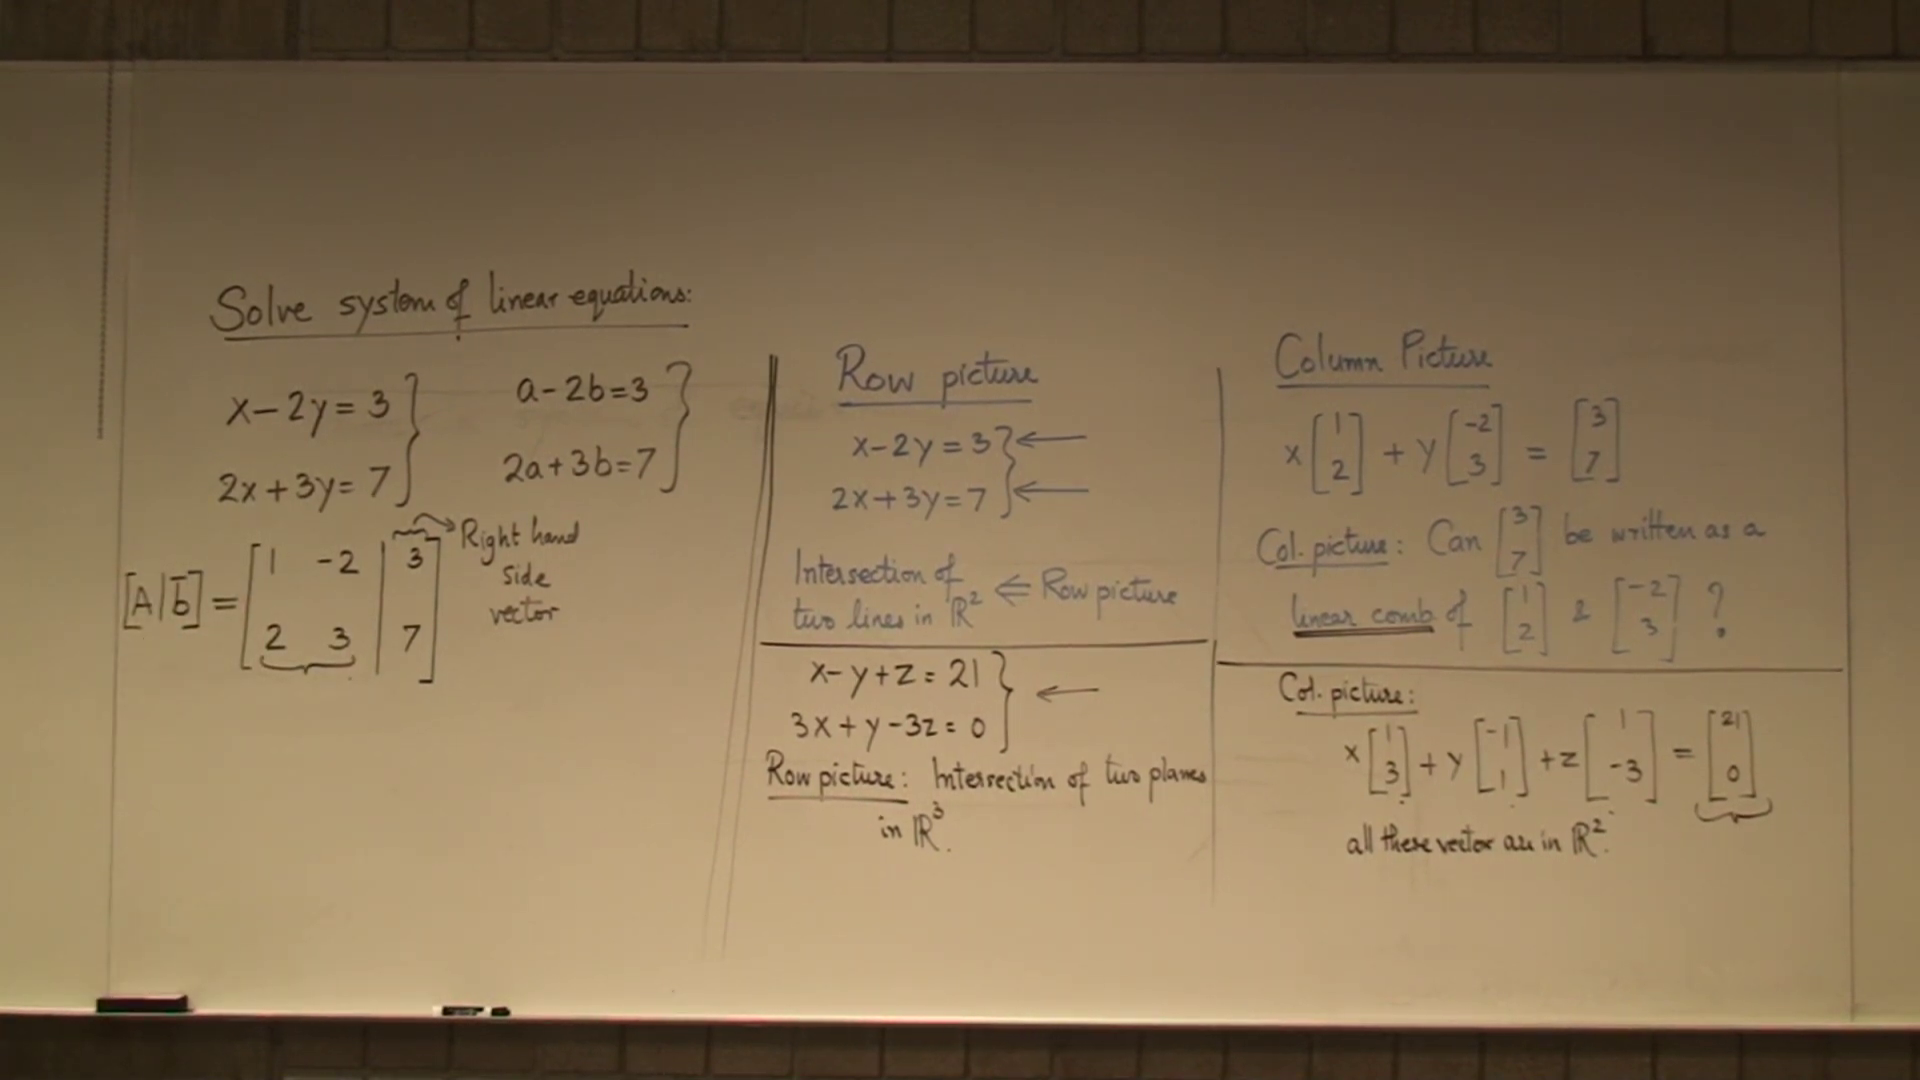 Solve system of linear equations:
x - 2y = 3
2x + 3y = 7
a - 2b = 3
2a + 3b = 7
[A | b̅] = [1 -2 | 3
2 3 | 7]
Right hand
side
vector
Row picture
x - 2y = 3 ←
2x + 3y = 7 ←
Intersection of
two lines in ℝ² ⇐ Row picture
x - y + z = 21
3x + y - 3z = 0 ←
Row picture: Intersection of two planes
in ℝ³.
Column Picture
x [1 2] + y [-2 3] = [3 7]
Col. picture: Can [3 7] be written as a
linear comb of [1 2] & [-2 3] ?
Col. picture:
x [1 3] + y [-1 1] + z [1 -3] = [21 0]
all these vector are in ℝ².